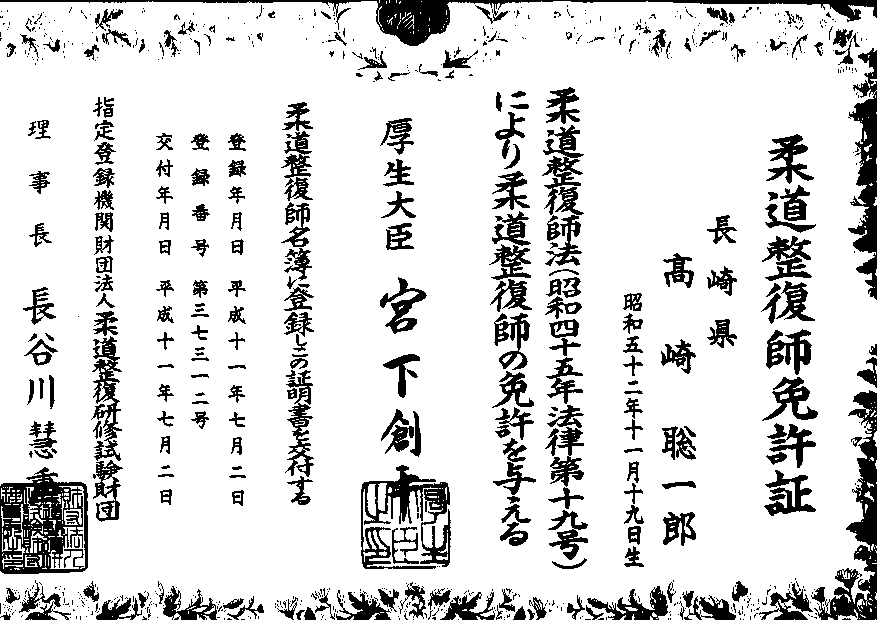 柔道整復師免許証
長崎県
髙崎聡一郎
昭和五十二年十一月十九日生
柔道整復師法(昭和四十五年法律第十九号)
により柔道整復師の免許を与える
厚生大臣 宮下創平
柔道整復師名簿に登録しこの証明書を交付する
登録年月日 平成十一年七月二日
登録番号 第三七三一二号
交付年月日 平成十一年七月二日
指定登録機関財団法人柔道整復研修試験財団
理事長 長谷川慧重